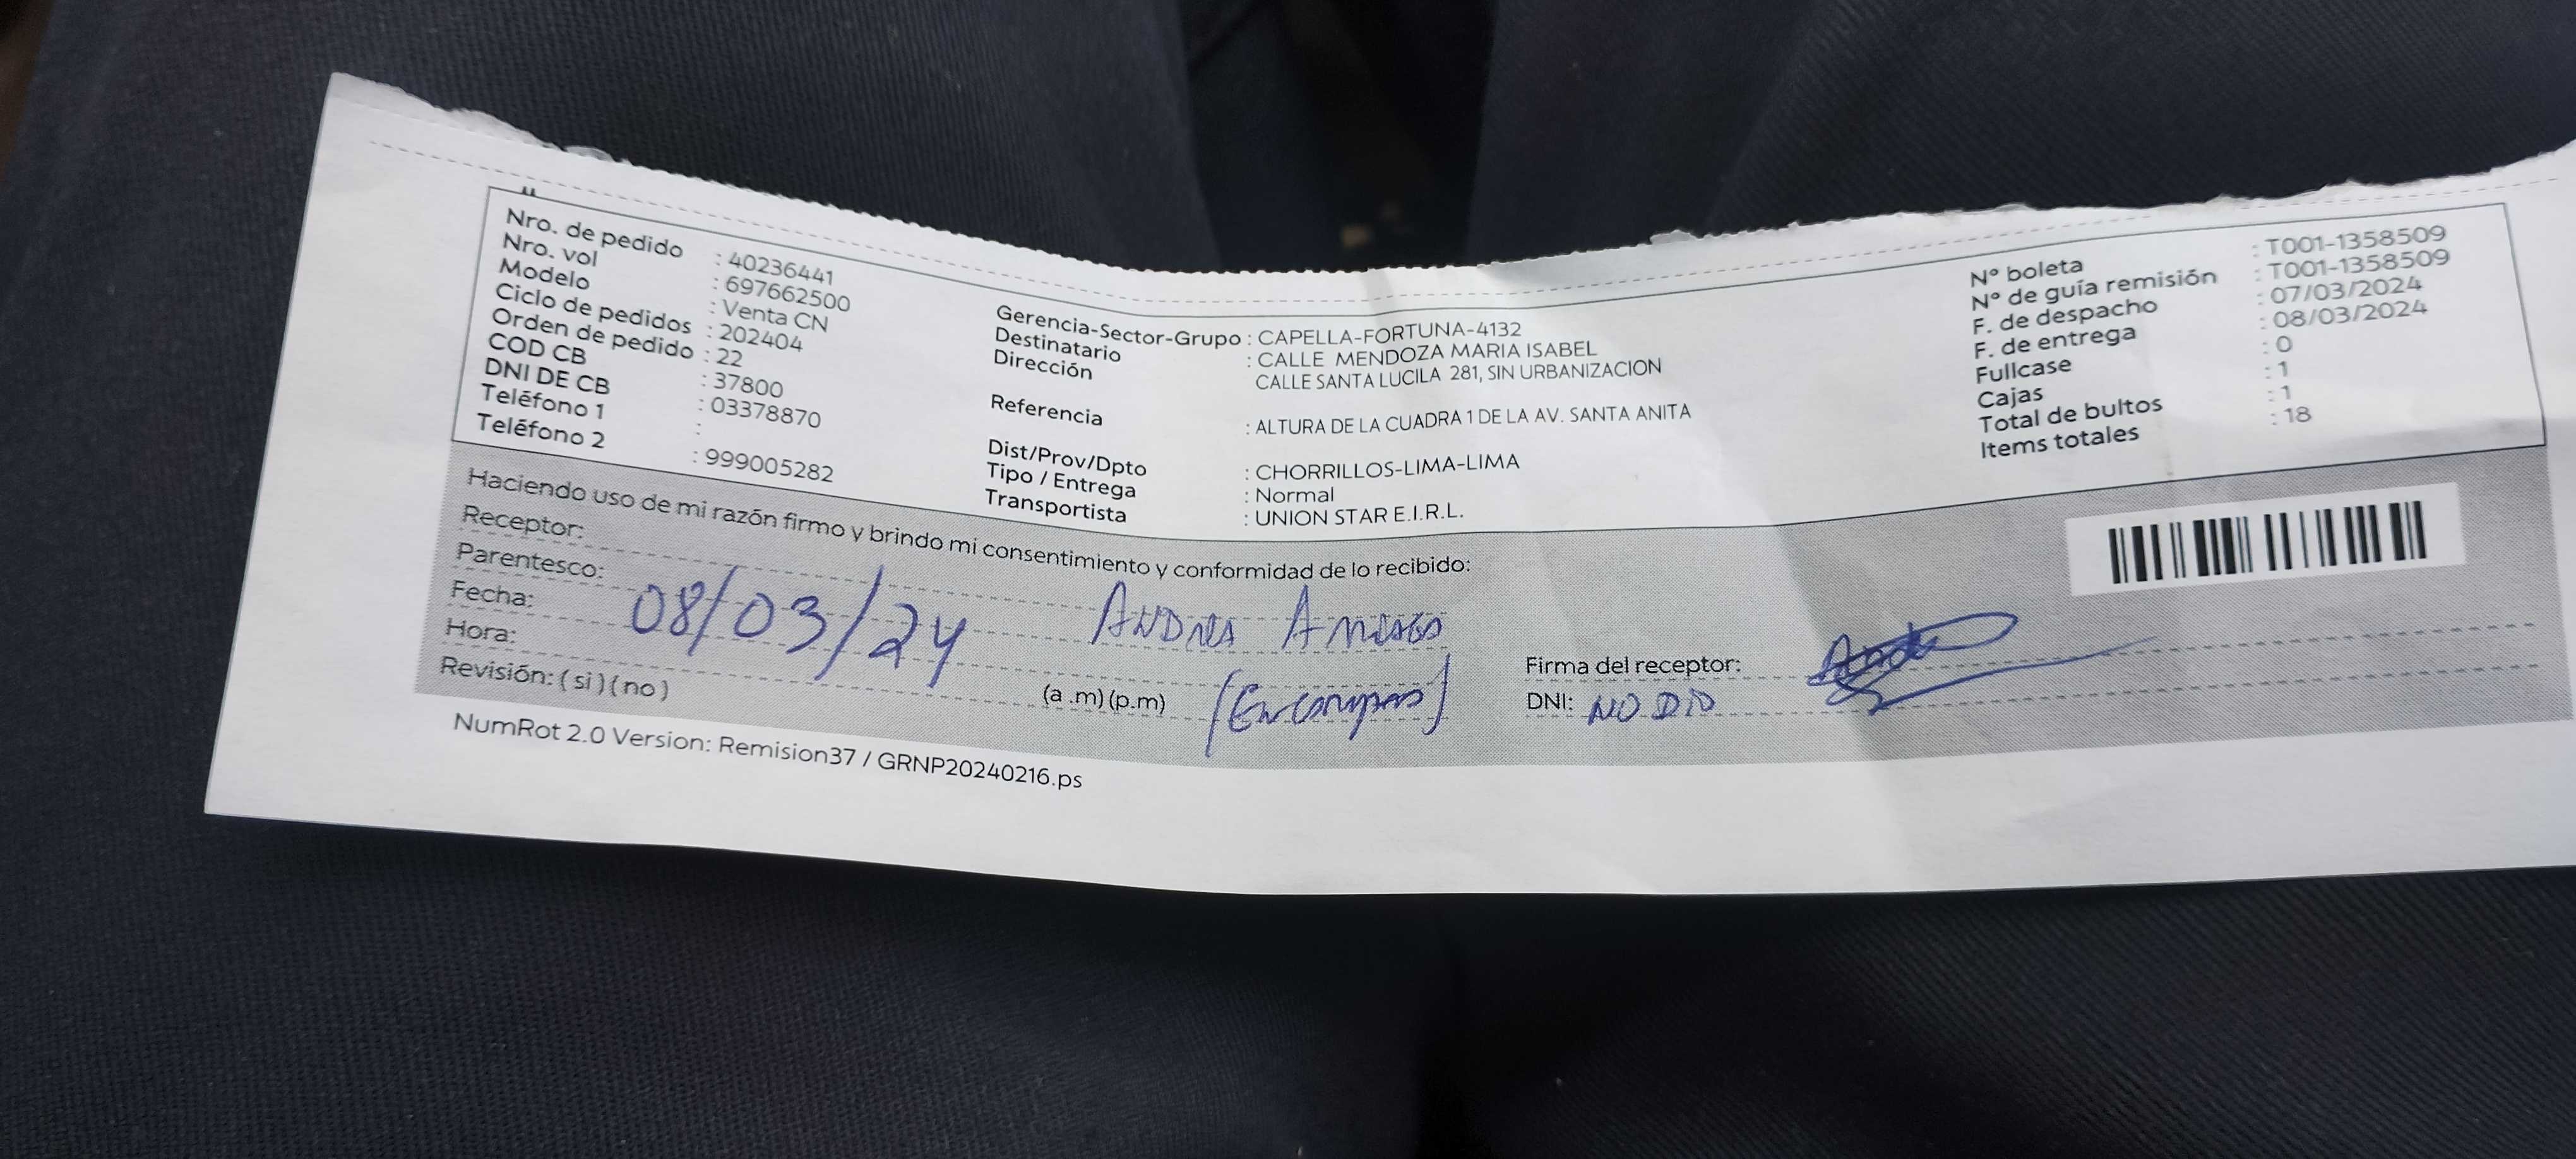 Nro. de pedido : 40236441
Nro. vol : 697662500
Modelo : Venta CN
Ciclo de pedidos : 202404
Orden de pedido : 22
COD CB : 37800
DNI DE CB : 03378870
Teléfono 1 :
Teléfono 2 : 999005282
Gerencia-Sector-Grupo : CAPELLA-FORTUNA-4132
Destinatario : CALLE MENDOZA MARIA ISABEL
Dirección CALLE SANTA LUCILA 281, SIN URBANIZACION
Referencia : ALTURA DE LA CUADRA 1 DE LA AV. SANTA ANITA
Dist/Prov/Dpto : CHORRILLOS-LIMA-LIMA
Tipo / Entrega : Normal
Transportista : UNION STAR E.I.R.L.
N° boleta : T001-1358509
N° de guía remisión : T001-1358509
F. de despacho : 07/03/2024
F. de entrega : 08/03/2024
Fullcase : 0
Cajas : 1
Total de bultos : 1
Items totales : 18
Haciendo uso de mi razón firmo y brindo mi consentimiento y conformidad de lo recibido:
Receptor:
Parentesco:
Fecha: 08/03/24
Hora: (a .m) (p.m)
Revisión: ( si ) ( no )
ANDRES
Firma del receptor:
DNI: NO DIO
NumRot 2.0 Version: Remision37 / GRNP20240216.ps